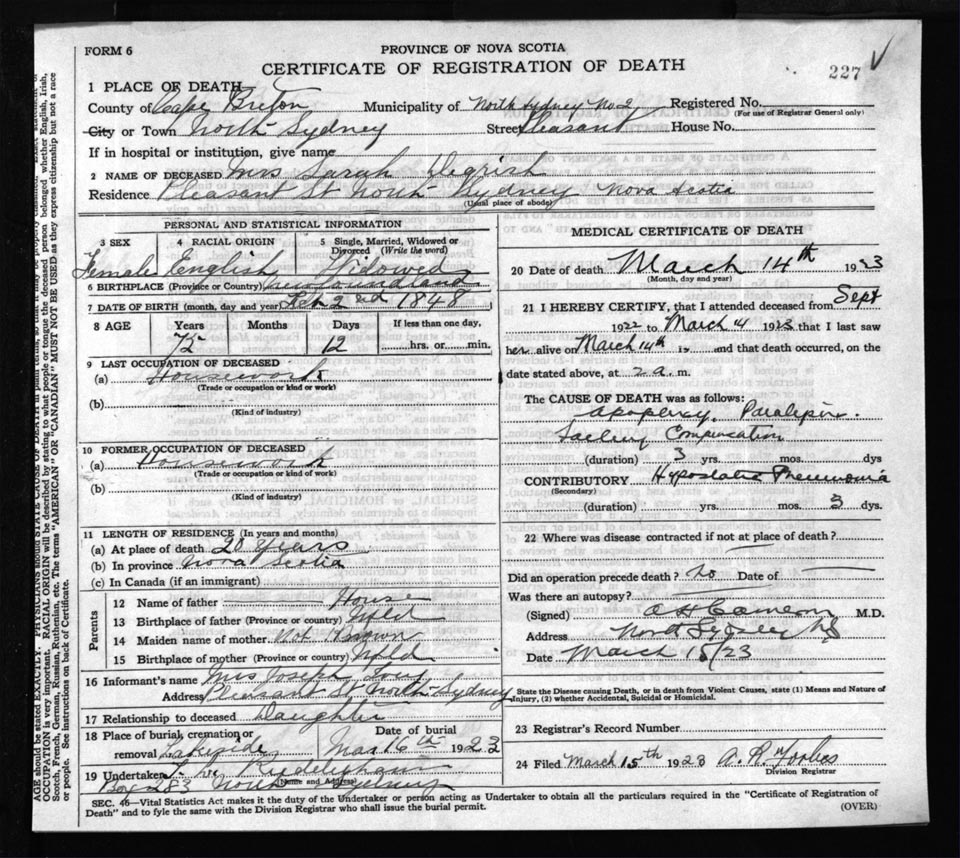 FORM 6
PROVINCE OF NOVA SCOTIA
CERTIFICATE OF REGISTRATION OF DEATH
227
1 PLACE OF DEATH
County of Cape Breton Municipality of North Sydney No 2 Registered No.
(For use of Registrar General only)
City or Town North Sydney Street Pleasant House No.
If in hospital or institution, give name
2 NAME OF DECEASED Mrs Sarah
Residence Pleasant St North Sydney Nova Scotia
(Usual place of abode)
PERSONAL AND STATISTICAL INFORMATION
3 SEX 4 RACIAL ORIGIN 5 Single, Married, Widowed or Divorced (Write the word)
Female English Widowed
6 BIRTHPLACE (Province or Country) Newfoundland
7 DATE OF BIRTH (month, day and year) Feb 2nd 1848
8 AGE Years Months Days If less than one day,
75 12 hrs. or min.
9 LAST OCCUPATION OF DECEASED
(a) Housework
(Trade or occupation or kind or work)
(b)
(Kind of industry)
10 FORMER OCCUPATION OF DECEASED
(a) Housework
(Trade or occupation or kind of work)
(b)
(Kind of industry)
11 LENGTH OF RESIDENCE (In years and months)
(a) At place of death 20 years
(b) In province Nova Scotia
(c) In Canada (if an immigrant)
Parents
12 Name of father House
13 Birthplace of father (Province or country) Nfld
14 Maiden name of mother Not Known
15 Birthplace of mother (Province or country) Nfld
16 Informant's name Mrs Joseph
Address Pleasant St North Sydney
17 Relationship to deceased Daughter
18 Place of burial, cremation or removal Lakeside Date of burial Mar 16th 1923
19 Undertaker
(Name and Address)
Box 283 North Sydney
MEDICAL CERTIFICATE OF DEATH
20 Date of death March 14th 1923
(Month, day and year)
21 I HEREBY CERTIFY, that I attended deceased from Sept
1922 to March 14 1923 that I last saw
her alive on March 14th 19 and that death occurred, on the
date stated above, at 2 a. m.
The CAUSE OF DEATH was as follows:
Apoplexy Paralysis
Failing Compensation
(duration) 3 yrs. mos. dys
CONTRIBUTORY Hypostatic Pneumonia
(Secondary)
(duration) yrs. mos. 3 dys.
22 Where was disease contracted if not at place of death?
Did an operation precede death? No Date of
Was there an autopsy?
(Signed) M.D.
Address North Sydney NS
Date March 15/23
State the Disease causing Death, or in death from Violent Causes, state (1) Means and Nature of
Injury, (2) whether Accidental, Suicidal or Homicidal.
23 Registrar's Record Number
24 Filed March 15th 1923 A. R. Forbes
Division Registrar
SEC. 46—Vital Statistics Act makes it the duty of the Undertaker or person acting as Undertaker to obtain all the particulars required in the "Certificate of Registration of
Death" and to fyle the same with the Division Registrar who shall issue the burial permit.
(OVER)